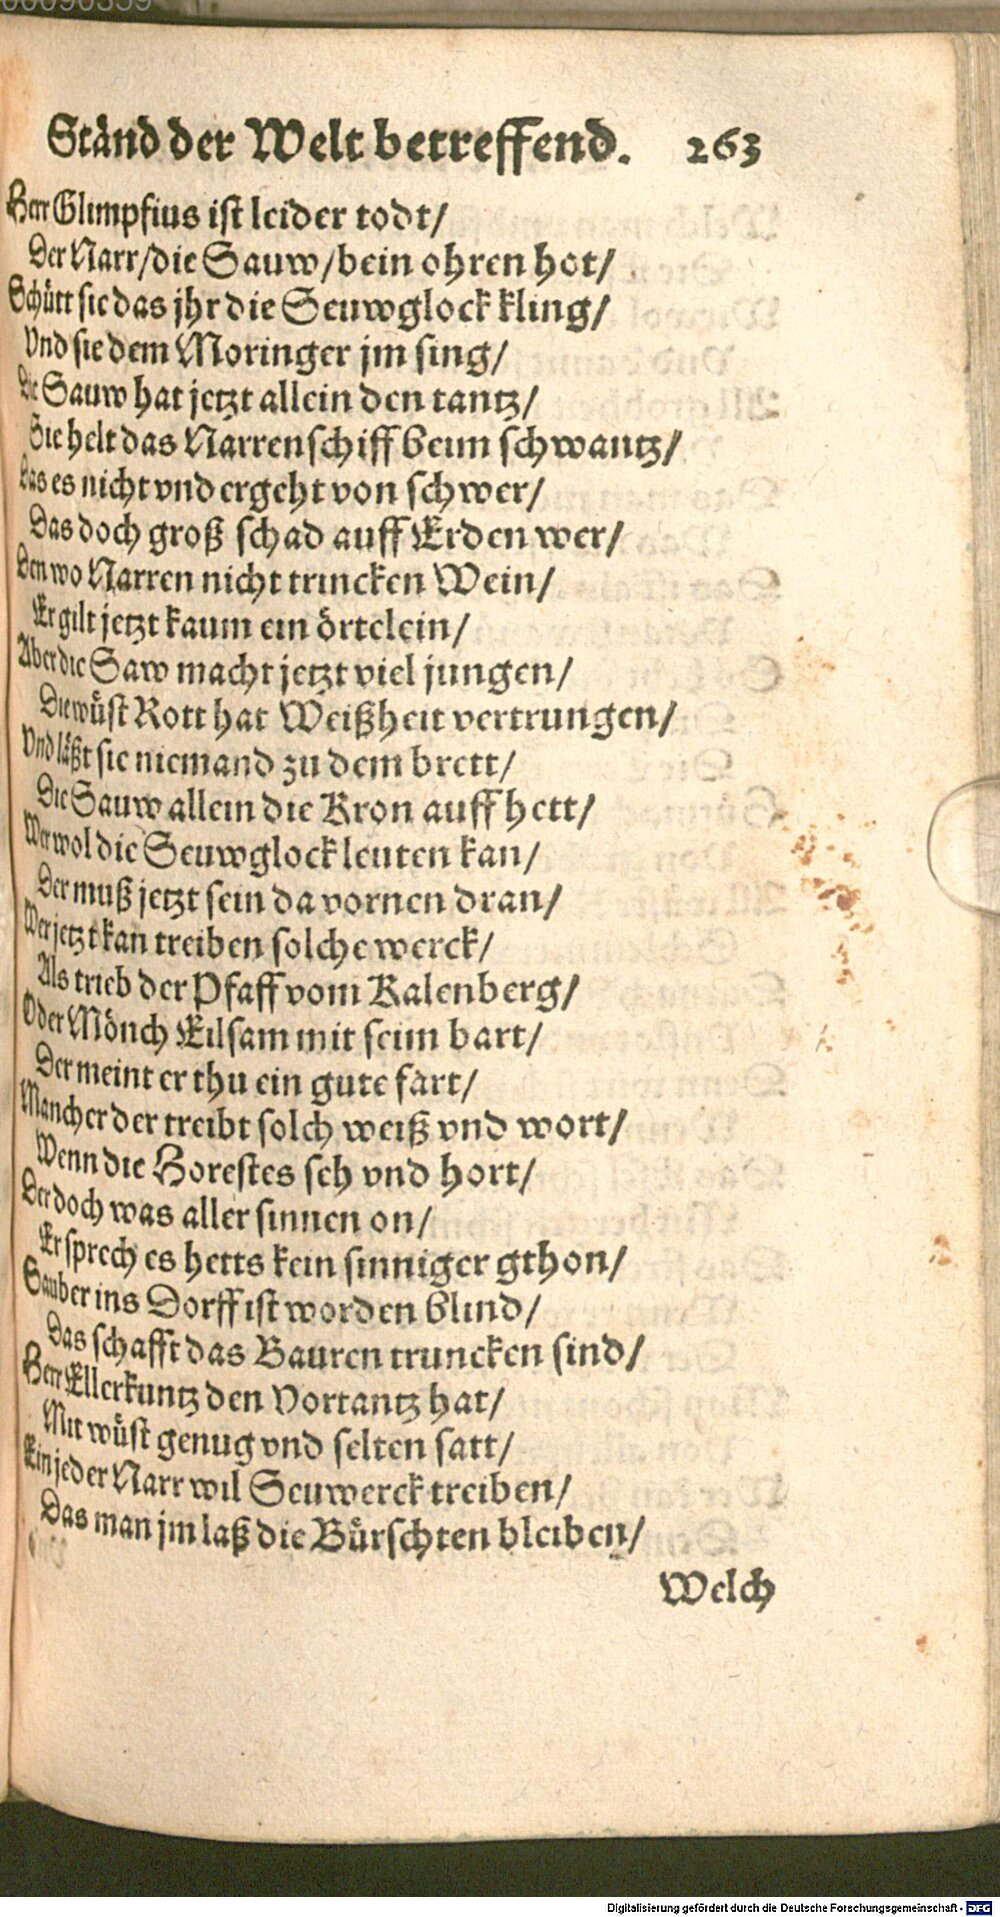 Ständ der Welt betreffend. 263
Herr Glimpfius ist leider todt/
Der Narr/die Sauw/bein ohren hot/
Schütt sie das jhr die Seuwglock kling/
Vnd sie dem Moringer jm sing/
Die Sauw hat jetzt allein den tantz/
Sie helt das Narrenschiff beim schwantz/
Das es nicht vndergeht von schwer/
Das doch groß schad auff Erden wer/
Den wo Narren nicht trincken Wein/
Er gilt jetzt kaum ein örtelein/
Aber die Saw macht jetzt viel jungen/
Die wüst Rott hat Weißheit vertrungen/
Vnd läßt sie niemand zu dem brett/
Die Sauw allein die Kron auff hett/
Wer wol die Seuwglock leuten kan/
Der muß jetzt sein da vornen dran/
Wer jetzt kan treiben solche werck/
Als trieb der Pfaff vom Kalenberg/
Oder Mönch Eilsam mit seim bart/
Der meint er thu ein gute fart/
Mancher der treibt solch weiß vnd wort/
Wenn die Horestes seh vnd hort/
Der doch was aller sinnen on/
Er sprech es hetts kein sinniger gthon/
Sauber ins Dorff ist worden blind/
Das schafft das Bauren truncken sind/
Herr Ellerkuntz den Vortantz hat/
Mit wüst genug vnd selten satt/
Ein jeder Narr wil Seuwerck treiben/
Das man jm laß die Bürschten bleiben/
Welch
Digitalisierung gefördert durch die Deutsche Forschungsgemeinschaft - DFG